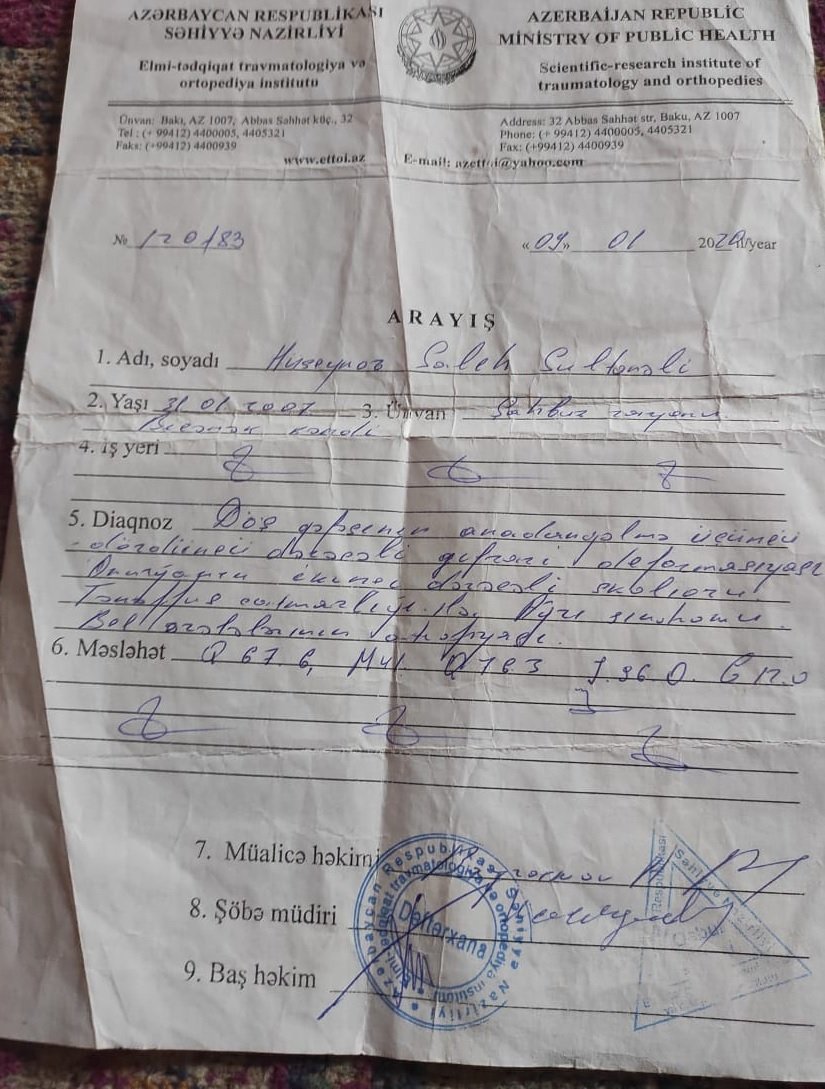 AZƏRBAYCAN RESPUBLİKASI
SƏHİYYƏ NAZİRLİYİ
Elmi-tədqiqat travmatologiya və
ortopediya institutu
AZERBAİJAN REPUBLİC
MİNİSTRY OF PUBLİC HEALTH
Scientific-research institute of
traumatology and orthopedies
Ünvan: Bakı, AZ 1007, Abbas Səhhət küç., 32
Tel : (+ 99412) 4400005, 4405321
Faks: (+99412) 4400939
www.ettoi.az
Address: 32 Abbas Səhhət str, Baku, AZ 1007
Phone: (+ 99412) 4400005, 4405321
Fax: (+99412) 4400939
E-mail: azettoi@yahoo.com
№ 120183
«09» 01 2020 il/year
ARAYIŞ
1. Adı, soyadı Huseynov Saleh Sultanəli
2. Yaşı 31 01 2007 3. Ünvan Şahbuz rayonu
Biçənək kəndi
4. iş yeri
5. Diaqnoz Döş qəfəsinin anadangəlmə üçüncü
dördüncü dərəcəli qıfvari deformasiyası
Onurğanın ikinci dərəcəli skoliozu
Tənəffüs çatmazlığı ilə. Ağrı sindromu.
Bel əzələlərinin
6. Məsləhət Q 67 6, Q 76 3 J.96 0.
7. Müalicə həkimi
8. Şöbə müdiri
9. Baş həkim
Azərbaycan Respublikası Səhiyyə Nazirliyi
Elmi-tədqiqat travmatologiya və ortopediya institutu